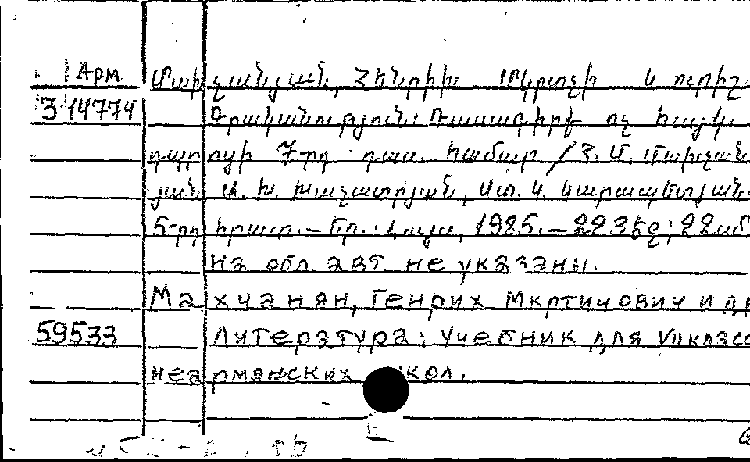 Арм Մախչանյան, Հենրիխ Մկրտչի և ուրիշ
3 14774 Գրականություն: Դասագիրք ոչ հայկ.
դպրոցի 7-րդ դաս. համար / Հ. Մ. Մախչան
յան, Ա. Խ. Խաչատրյան, Ս.
5-րդ հրատ. – Եր.: Լույս, 1985. – 223 էջ; 22սմ
На обл. авт. не указаны.
Махчанян, Генрих Мкртичович и др
59533 Литература: Учебник для VII класс
неармянских школ.